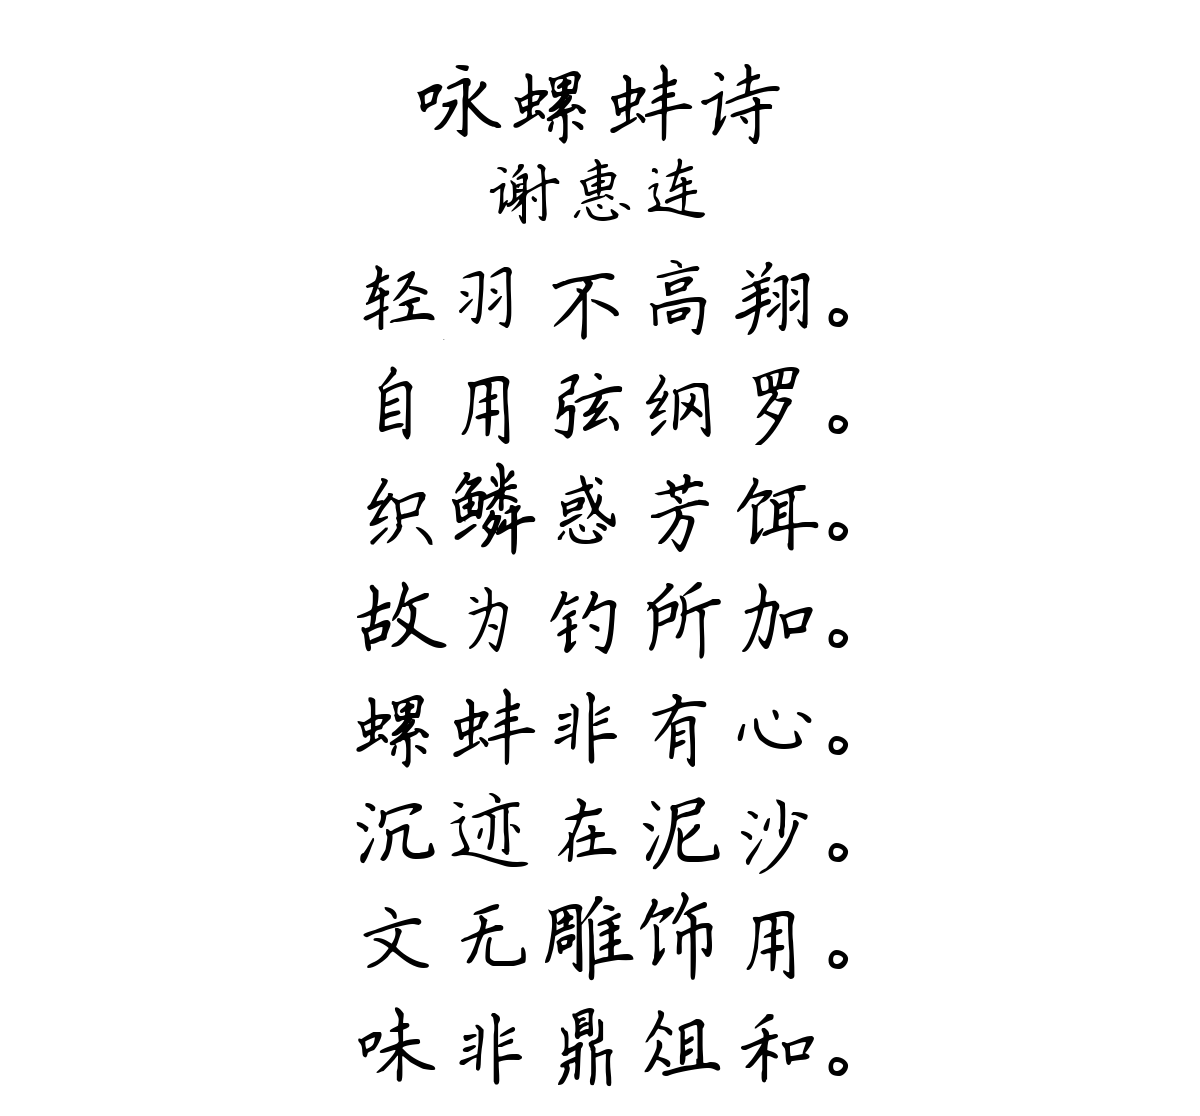 咏螺蚌诗
谢惠连
轻羽不高翔。
自用弦纲罗。
织鳞惑芳饵。
故为钓所加。
螺蚌非有心。
沉迹在泥沙。
文无雕饰用。
味非鼎俎和。